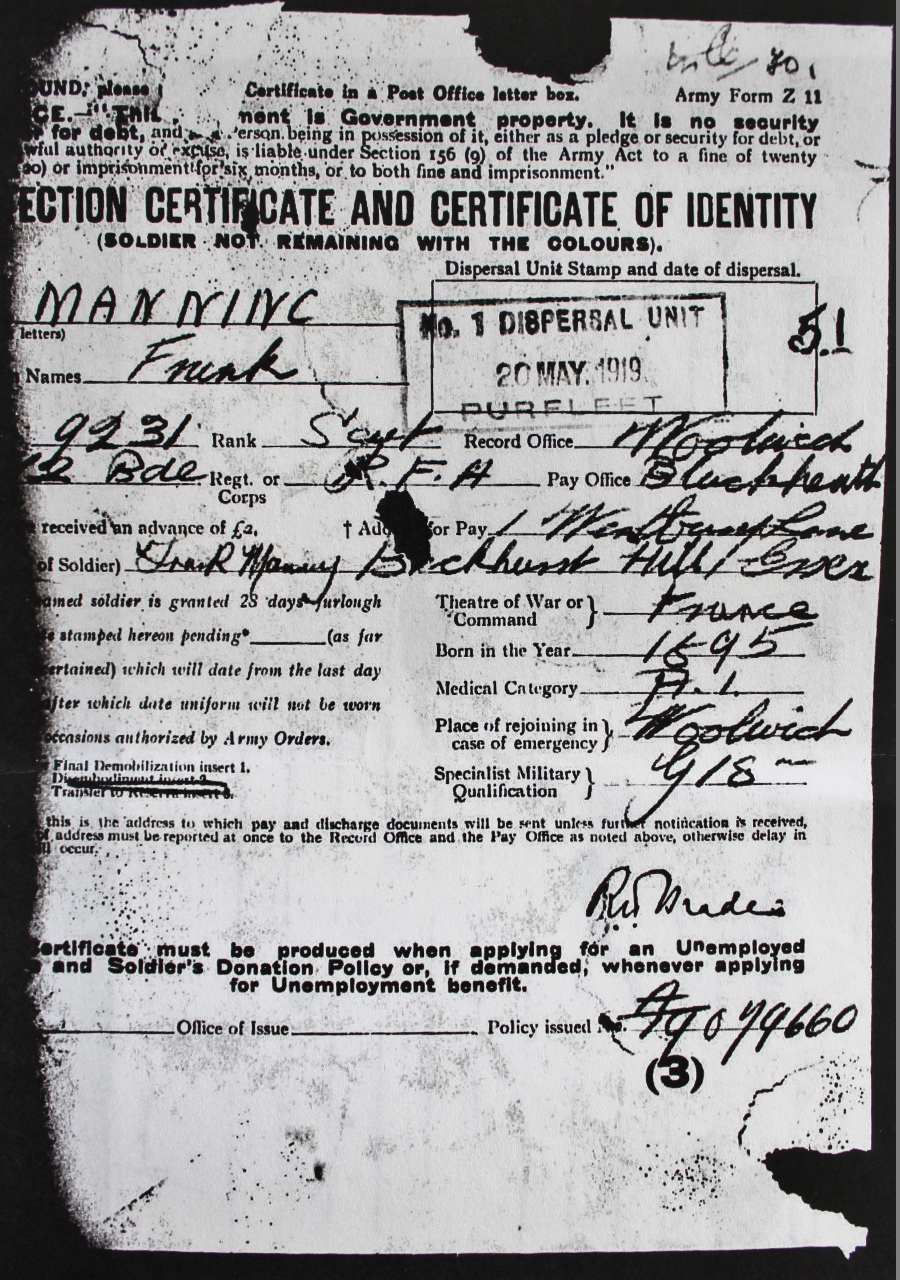 OUND, please Certificate in a Post Office letter box. Army Form Z 11
CE.—"This ment is Government property. It is no security
for debt, and erson being in possession of it, either as a pledge or security for debt, or
wful authority or excuse, is liable under Section 156 (9) of the Army Act to a fine of twenty
20) or imprisonment for six months, or to both fine and imprisonment."
ECTION CERTIFICATE AND CERTIFICATE OF IDENTITY
(SOLDIER NOT REMAINING WITH THE COLOURS).
Dispersal Unit Stamp and date of dispersal.
MANNING
letters)
No. 1 DISPERSAL UNIT
20 MAY. 1919
PURFLEET
51
Names Frank
9231 Rank Sergt Record Office Woolwich
Bde Regt. or Corps R.F.A Pay Office Blackheath
received an advance of £2. † Add for Pay 1 Lane
of Soldier) Frank Manning Buckhurst Hill Essex
amed soldier is granted 28 days' furlough
stamped hereon pending* (as far
ertained) which will date from the last day
after which date uniform will not be worn
occasions authorized by Army Orders.
Theatre of War or Command } France
Born in the Year 1895
Medical Category A.1.
Place of rejoining in case of emergency } Woolwich
Specialist Military Qualification }
Final Demobilization insert 1.
Disembodiment insert 2.
Transfer to Reserve insert 3.
this is the address to which pay and discharge documents will be sent unless further notification is received,
address must be reported at once to the Record Office and the Pay Office as noted above, otherwise delay in
ll occur.
ertificate must be produced when applying for an Unemployed
and Soldier's Donation Policy or, if demanded, whenever applying
for Unemployment benefit.
Office of Issue Policy issued No.
(3)